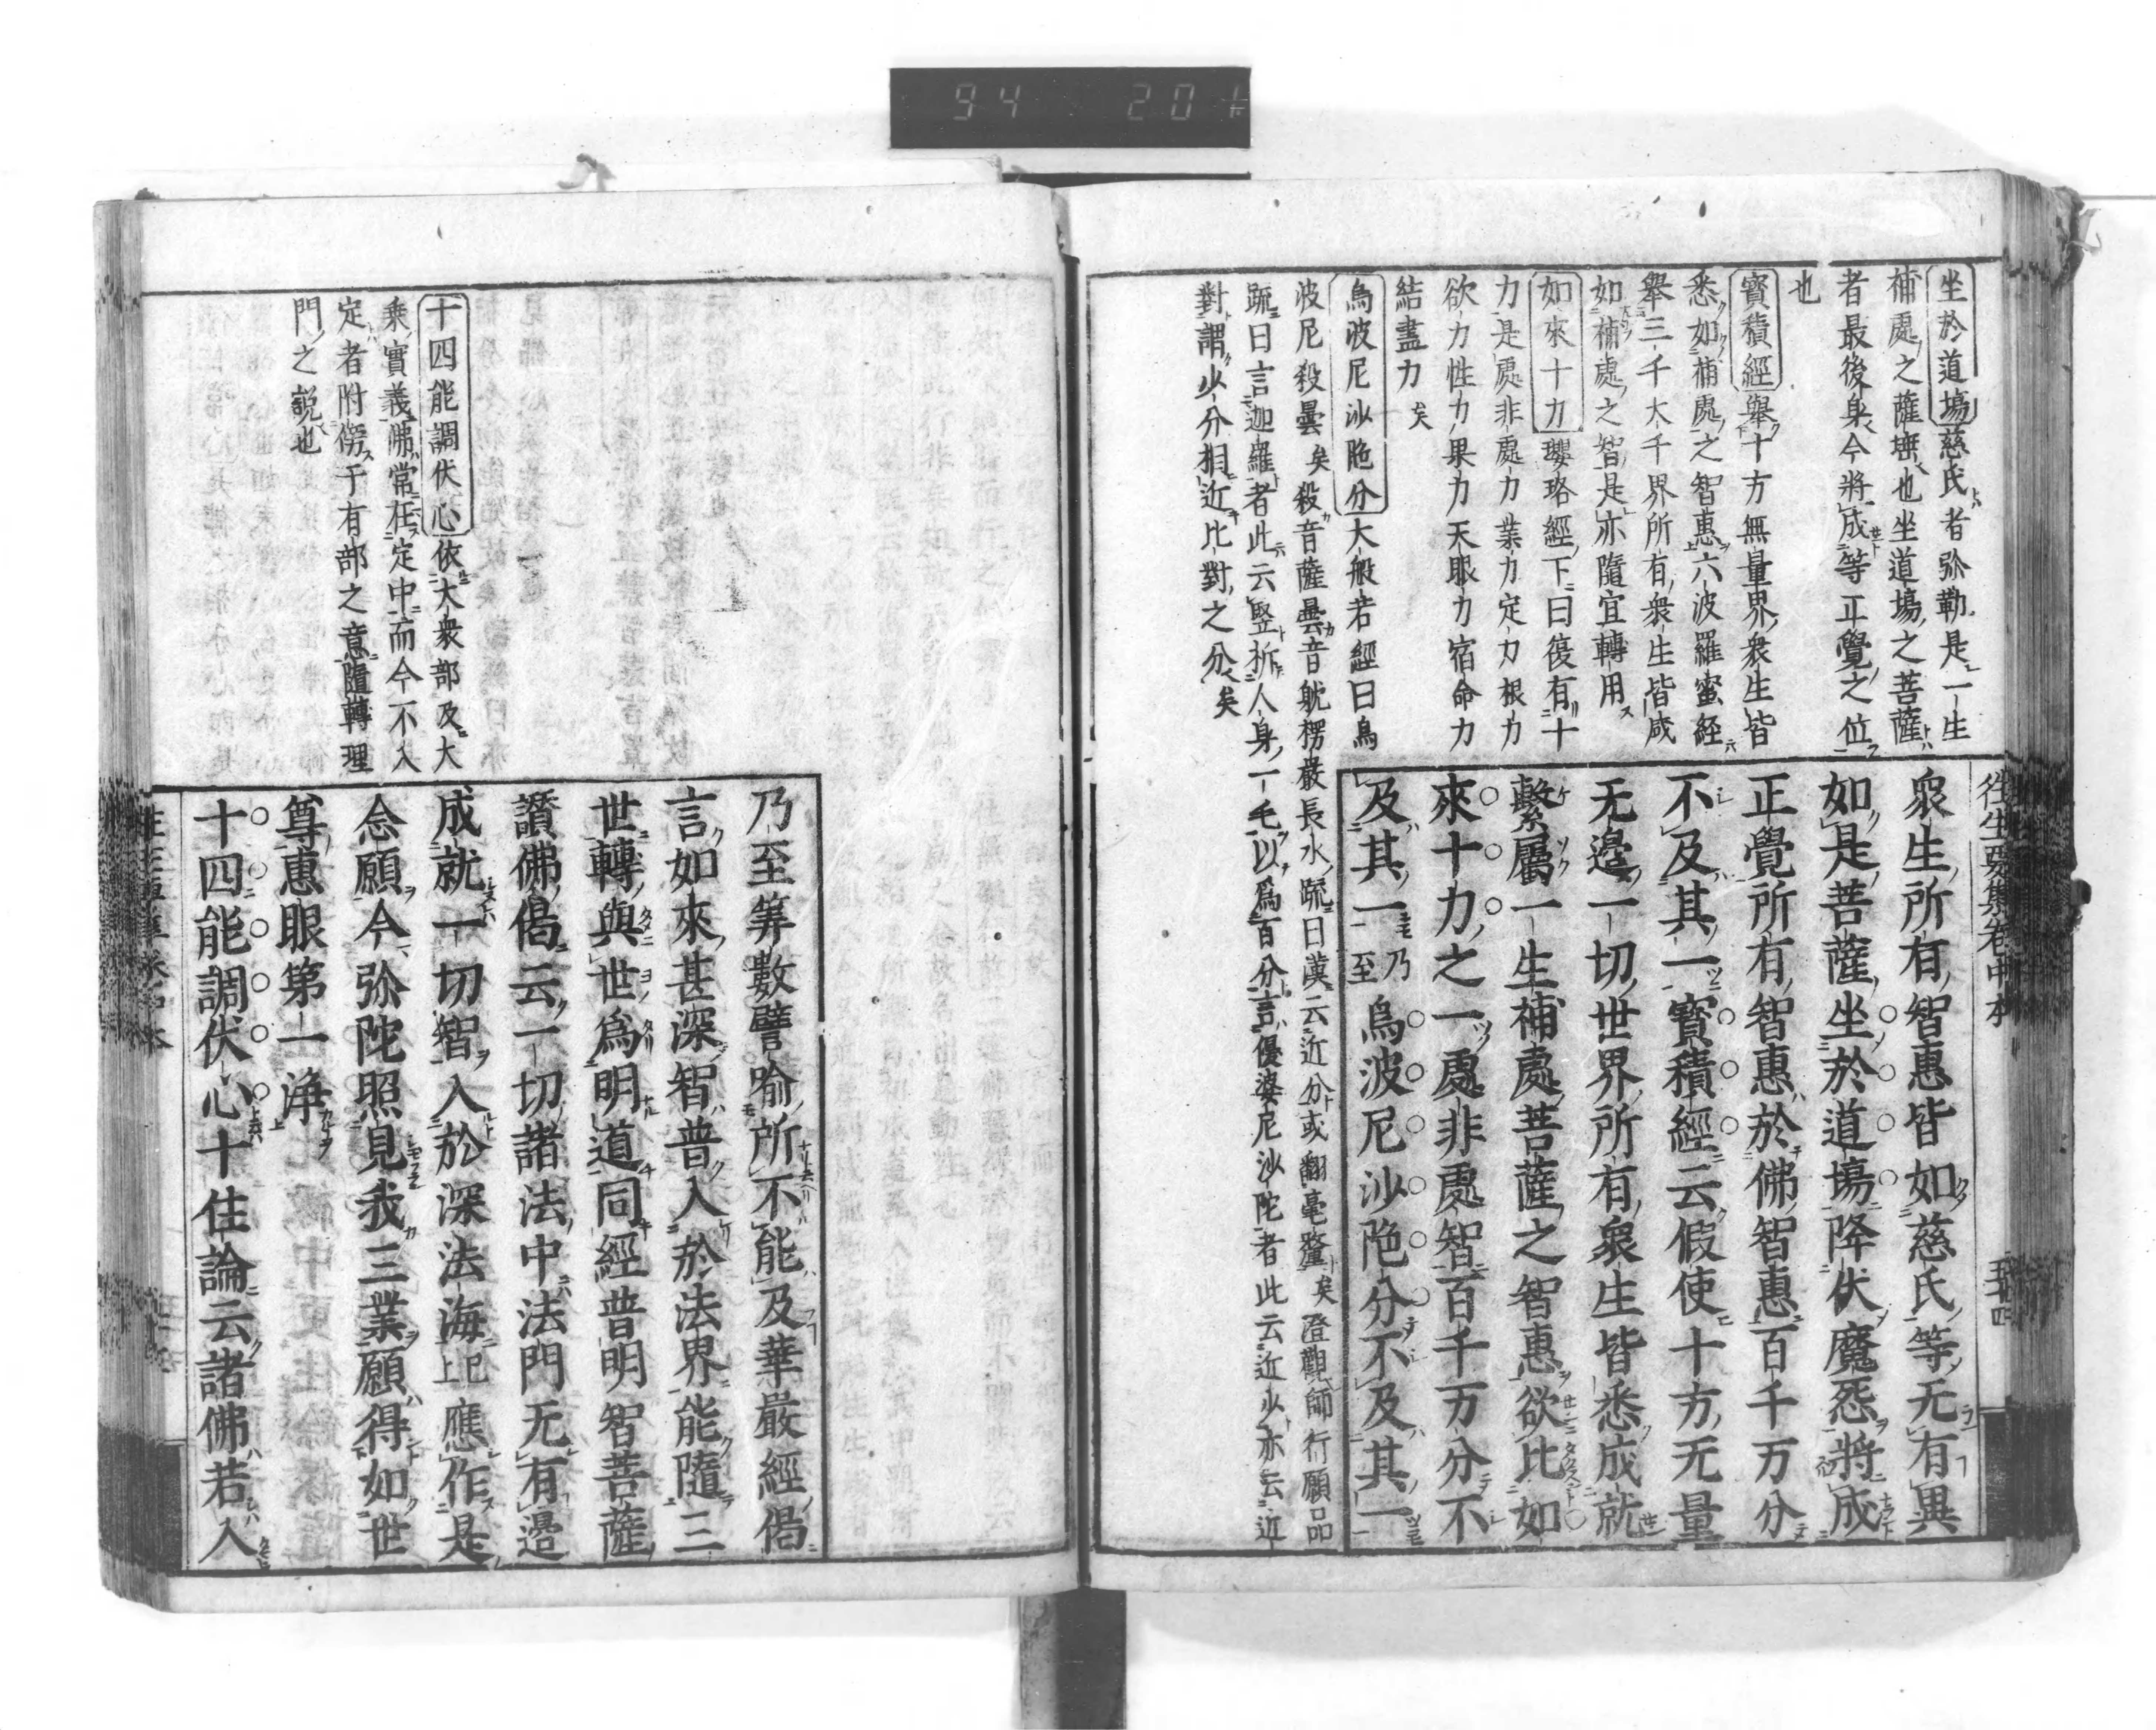 94 201
坐於道場慈氏者弥勒是一生
補處之薩埵也坐道場之菩薩
者最後身今將成等正覺之位
也
寶積經舉十方無量界衆生皆
悉如補處之智惠六波羅蜜經
舉三千大千界所有衆生皆咸
如補處之智是亦隨宜轉用
如來十力瓔珞經下曰復有十
力是處非處力業力定力根力
欲力性力果力天眼力宿命力
結盡力矣
烏波尼沙陁分大般若經曰烏
波尼殺曇矣殺音薩曇音躭楞嚴長水䟽曰漢云近分或翻毫釐矣澄觀師行願品
䟽曰言迦羅者此云竪析人身一毛以爲百分言優婆尼沙陀者此云近少亦云近
對謂少分相近比對之分矣
往生要集卷中本
五十四
衆生所有智惠皆如慈氏等无有異
如是菩薩坐於道場降伏魔怨將成
正覺所有智惠於佛智惠百千万分
不及其一寶積經云假使十方无量
无邊一切世界所有衆生皆悉成就
繫屬一生補處菩薩之智惠欲比如
來十力之一處非處智百千万分不
及其一乃至烏波尼沙陁分不及其一
十四能調伏心依大衆部及大
乘實義佛常在定中而今不入
定者附傍于有部之意隨轉理
門之説也
乃至筭數譬喻所不能及華嚴經偈
言如來甚深智普入於法界能隨三
世轉與世爲明道同經普明智菩薩
讚佛偈云一切諸法中法門无有邉
成就一切智入於深法海已上應作是
念願今弥陀照見我三業願得如世
尊惠眼第一淨上
十四能調伏心十住論云諸佛若入